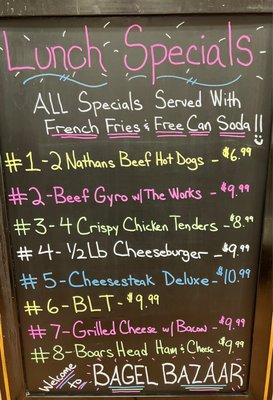 Lunch Specials
ALL Specials Served With
French Fries & Free Can Soda!!
#1-2 Nathans Beef Hot Dogs - $6.99
#2-Beef Gyro w/The Works - $9.99
#3-4 Crispy Chicken Tenders - $8.99
#4-1/2Lb Cheeseburger - $9.99
#5-Cheesesteak Deluxe - $10.99
#6-BLT - $9.99
#7-Grilled Cheese w/Bacon - $9.99
#8-Boars Head Ham & Cheese - $9.99
Welcome to BAGEL BAZAAR